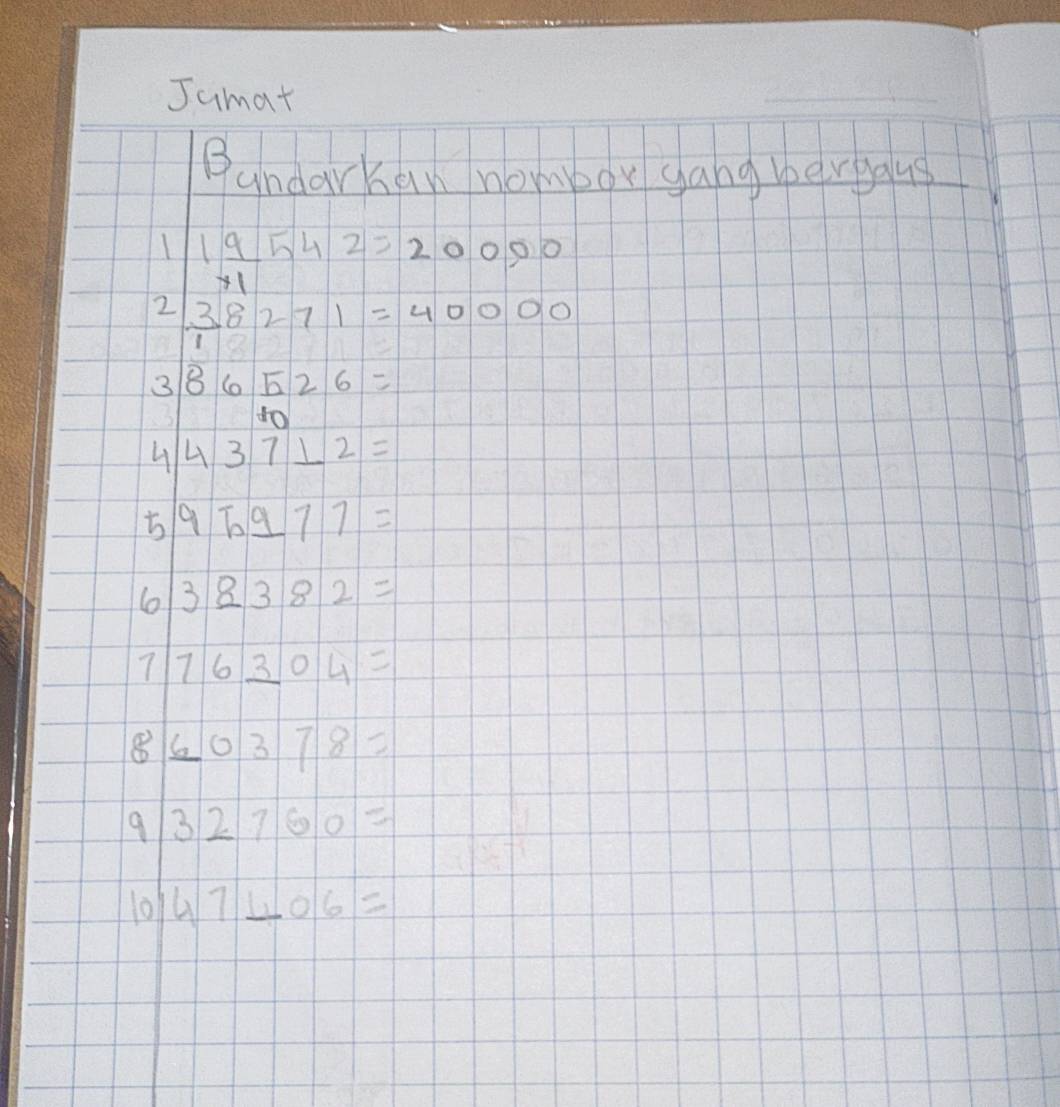 Jumat
Bundarkan nombor yang bergaus
1 19542=20000
+1
2 38271=40000
1
3 86526=
+0
4 43712=
5 95977=
6 38382=
7 76304=
8 60378=
9 32760=
10 47406=